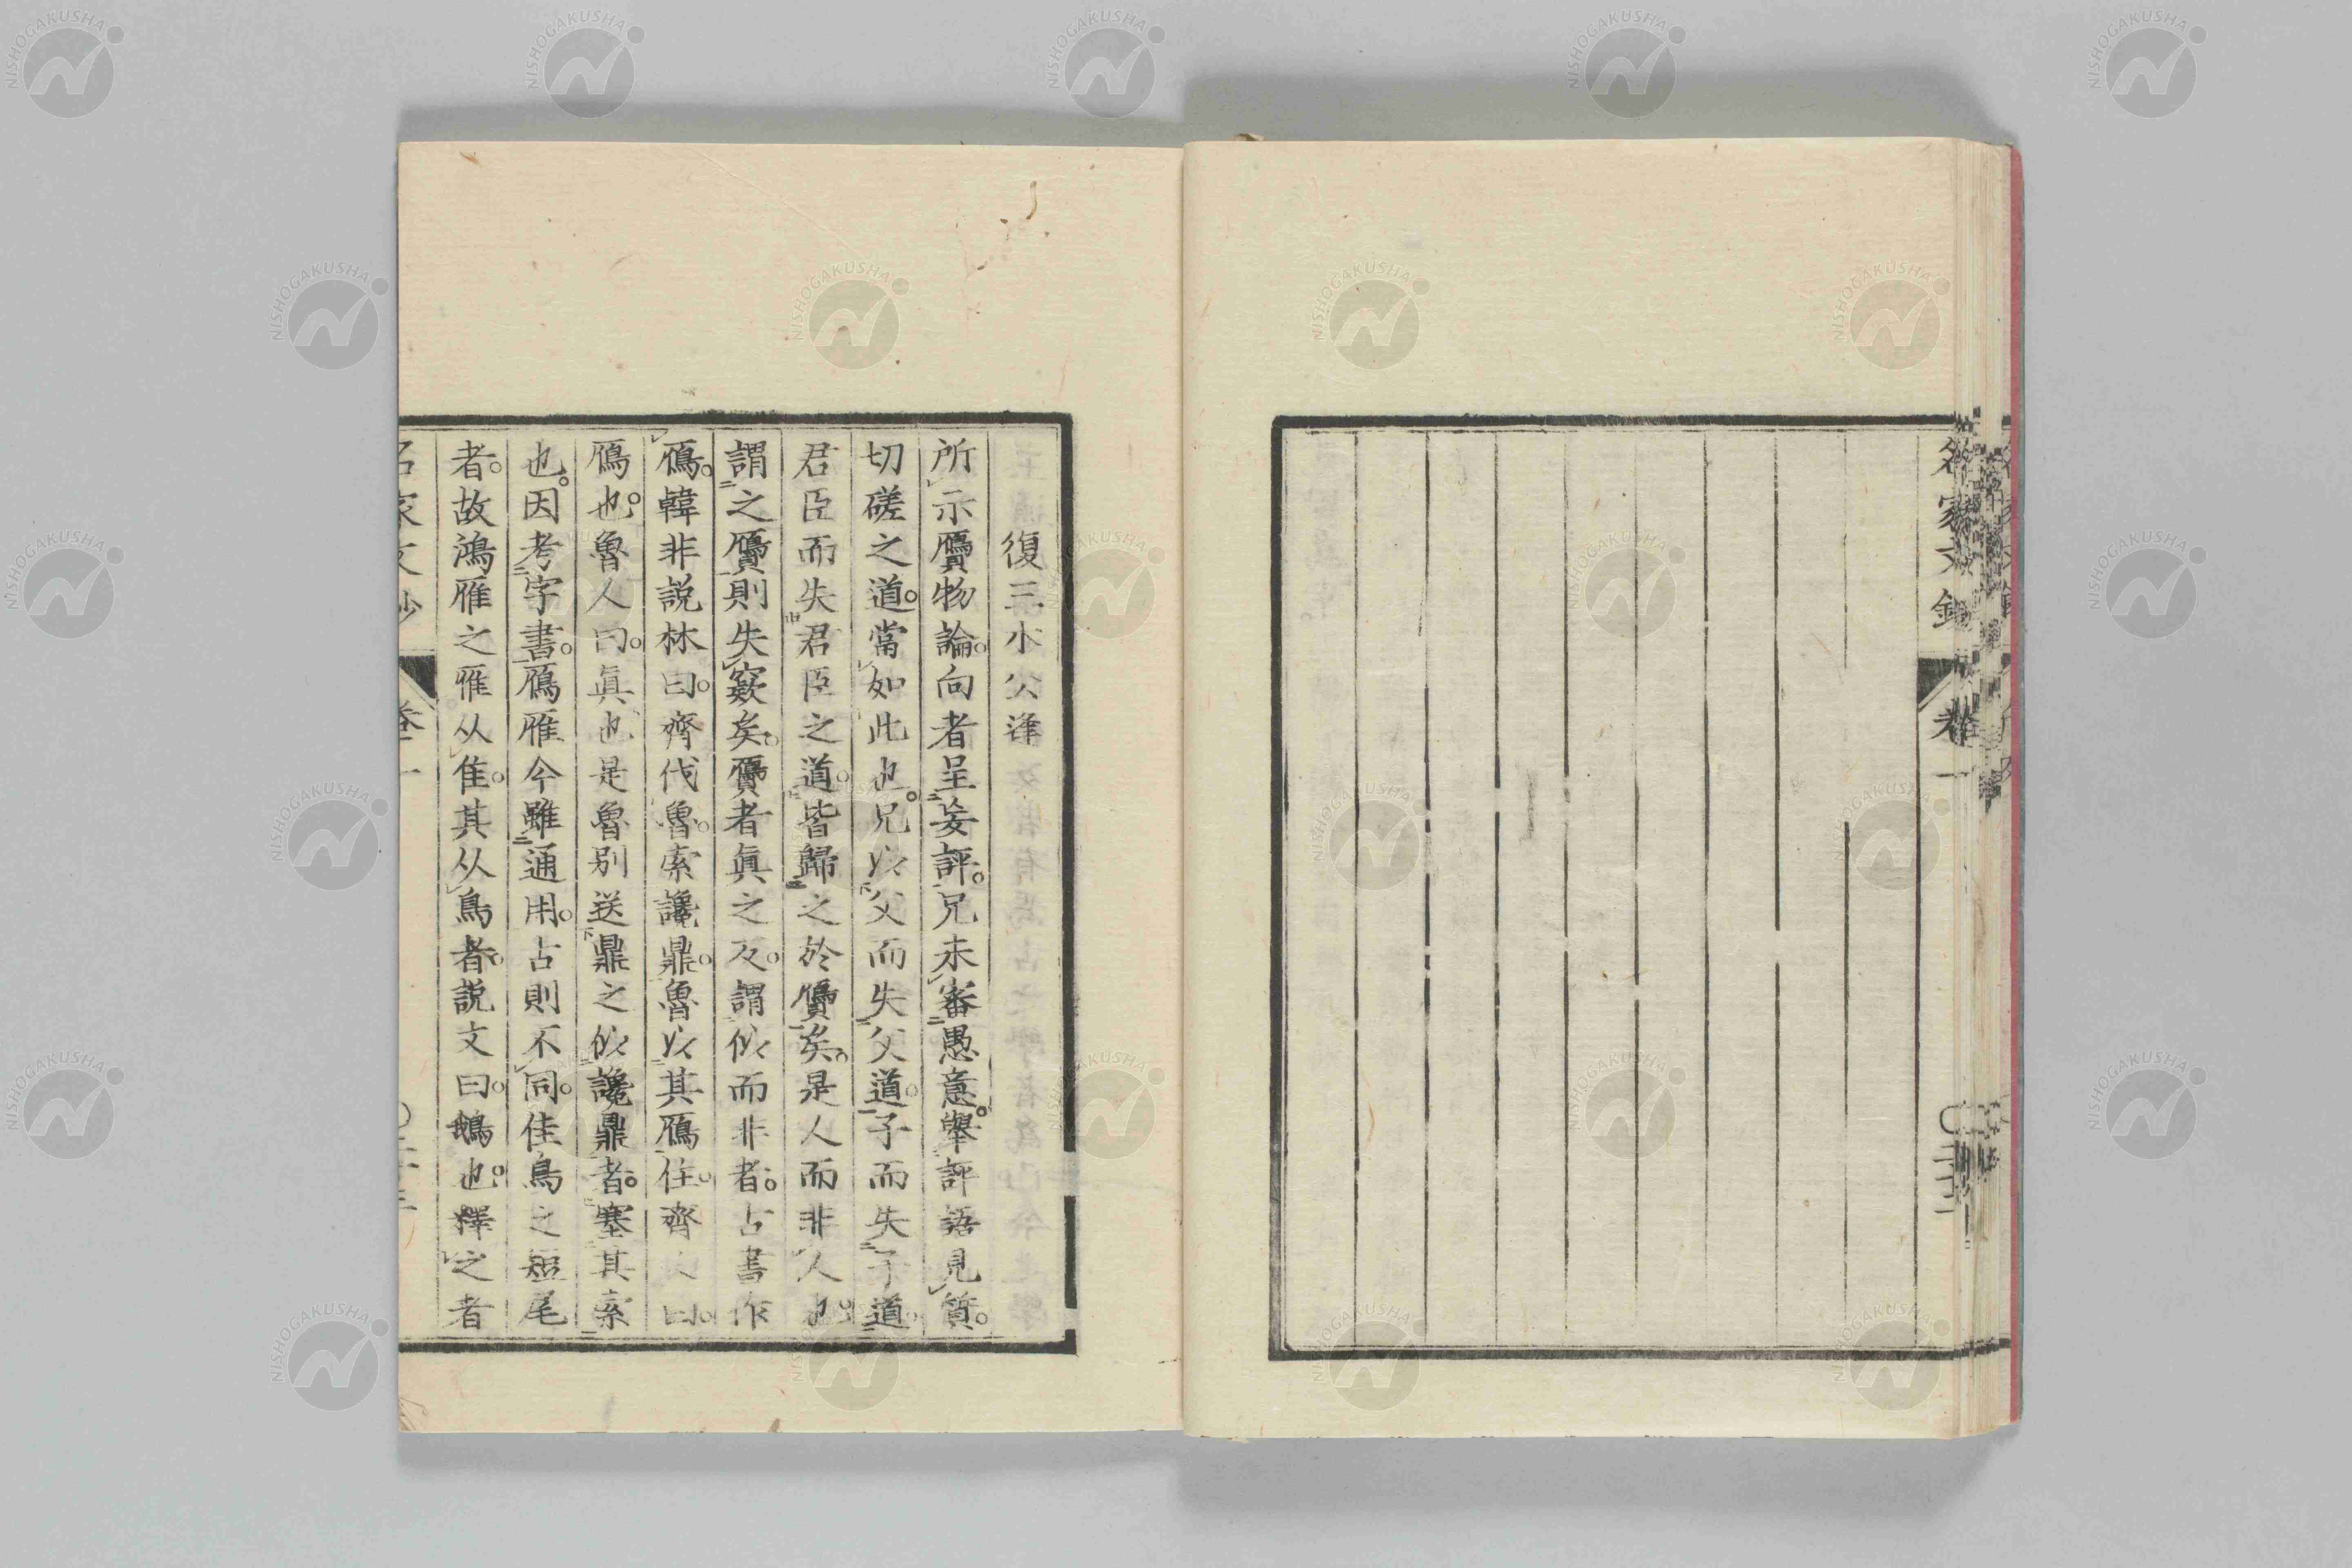 名家文鈔 卷一
復三水公逢
所示贗物論。向者呈妄評。兄未審愚意。舉評語見質。
切磋之道。當如此也。兄以父而失父道。子而失子道。
君臣而失君臣之道。皆歸之於贗矣。是人而非人也。
謂之贗則失窾矣。贗者眞之反。謂似而非者。古書作
鴈。韓非說林曰。齊伐魯。索讒鼎。魯以其鴈往。齊人曰。
鴈也。魯人曰。眞也是魯別送鼎之似讒鼎者。塞其索
也。因考字書。鴈雁今雖通用。古則不同。隹鳥之短尾
者。故鴻雁之雁从隹。其从鳥者。說文曰。鵝也。釋之者
名家文鈔 卷一
NISHOGAKUSHA